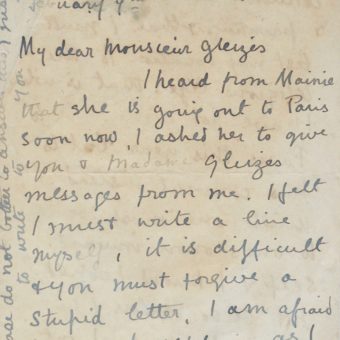 My dear Monsieur Gleizes
I heard from Mainie
that she is going out to Paris
soon now, I asked her to give
you & Madame Gleizes
messages from me. I felt
I must write a line
myself, it is difficult
& you must forgive a
stupid letter, I am afraid
as I
do not bother to answer this
to write to you